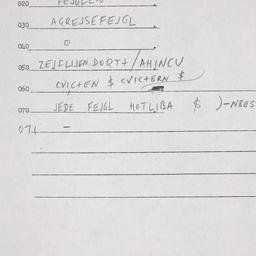 020 PEJGLEN
030 AGREJSEFEJGL
040 0
050 ZEJFLIJEN DORT+/AHINCU
CVICTEN $ CVICTERN $
060
070 JEDE FEJGL HOTLIBA $ )-NBES
07+ -